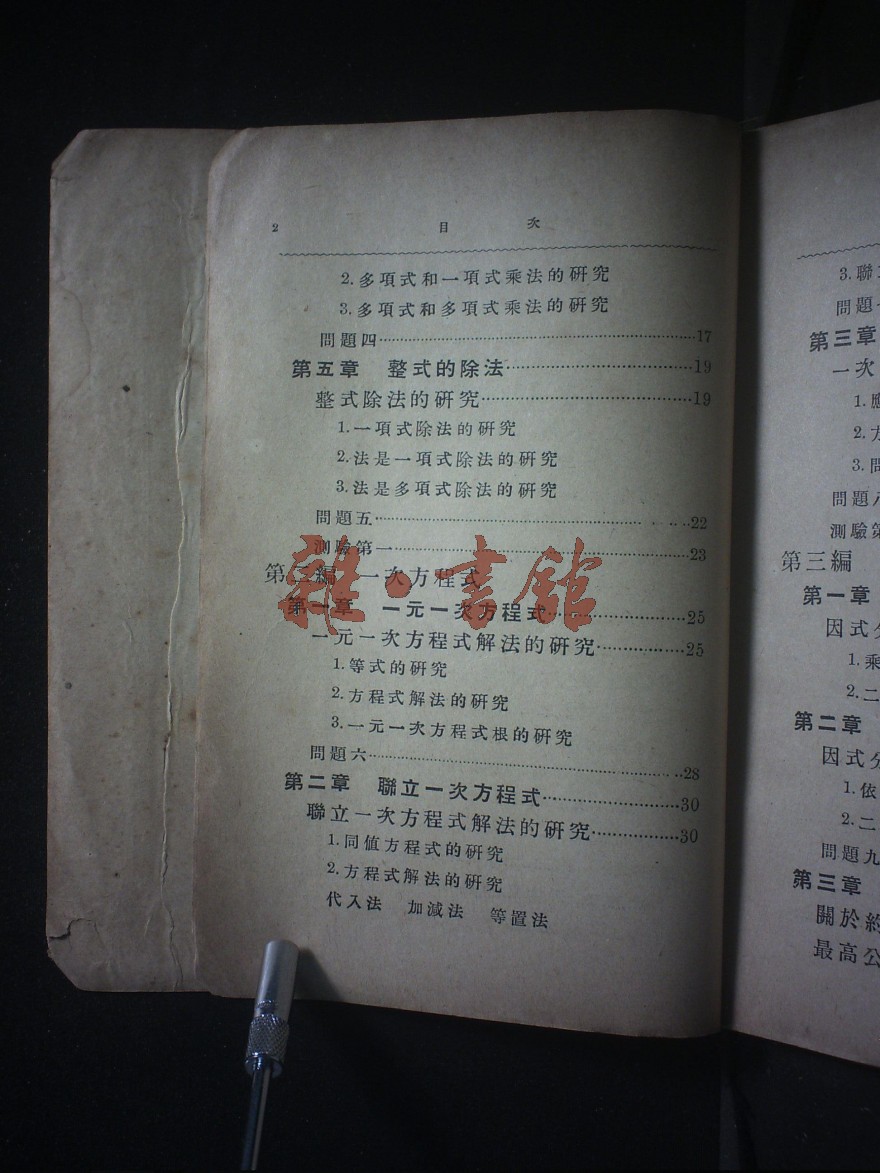 2 目 次
2.多項式和一項式乘法的研究
3.多項式和多項式乘法的研究
問題四……17
第五章 整式的除法……19
整式除法的研究……19
1.一項式除法的研究
2.法是一項式除法的研究
3.法是多項式除法的研究
問題五……22
測驗第一……23
第二編 一次方程式
第一章 一元一次方程式……25
一元一次方程式解法的研究……25
1.等式的研究
2.方程式解法的研究
3.一元一次方程式根的研究
問題六……28
第二章 聯立一次方程式……30
聯立一次方程式解法的研究……30
1.同值方程式的研究
2.方程式解法的研究
代入法 加減法 等置法
雜·書館
3.聯
問題
第三章
一次
1.應
2.方
3.問
問題八
測驗第
第三編
第一章
因式分
1.乘
2.二
第二章
因式分
1.依
2.二
問題九
第三章
關於約
最高公